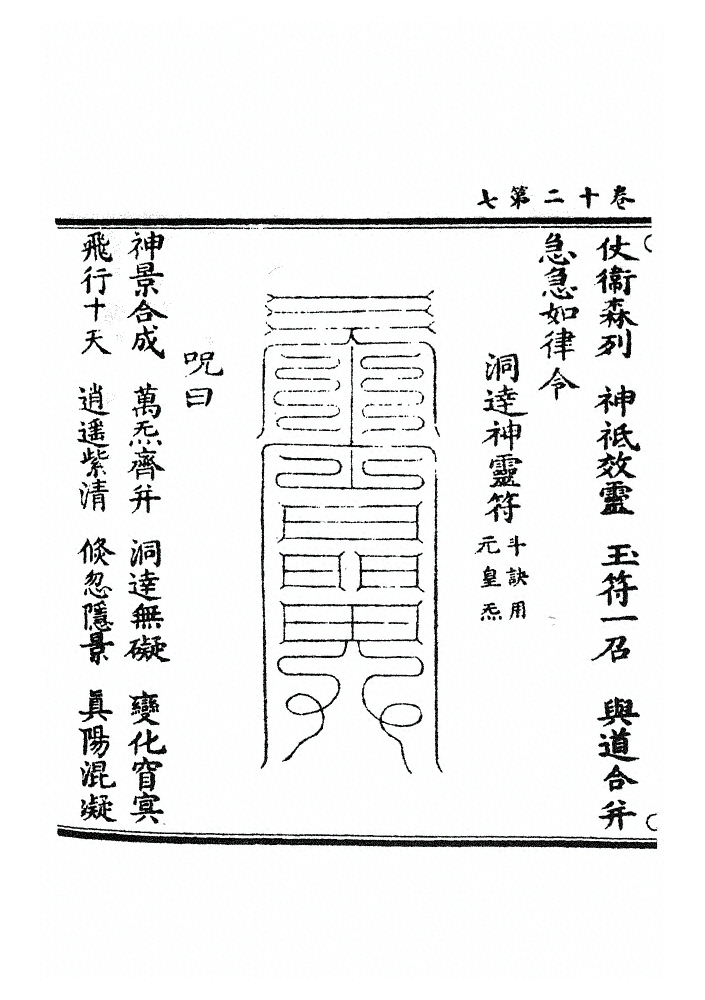 卷二十第七
仗衞森列　神祇效靈　玉符一召　與道合并
急急如律令
洞達神靈符
斗訣用
元皇炁
咒曰
神景合成　萬炁齊并　洞達無礙　變化窅冥
飛行十天　逍遥紫清　倏忽隱景　眞陽混凝